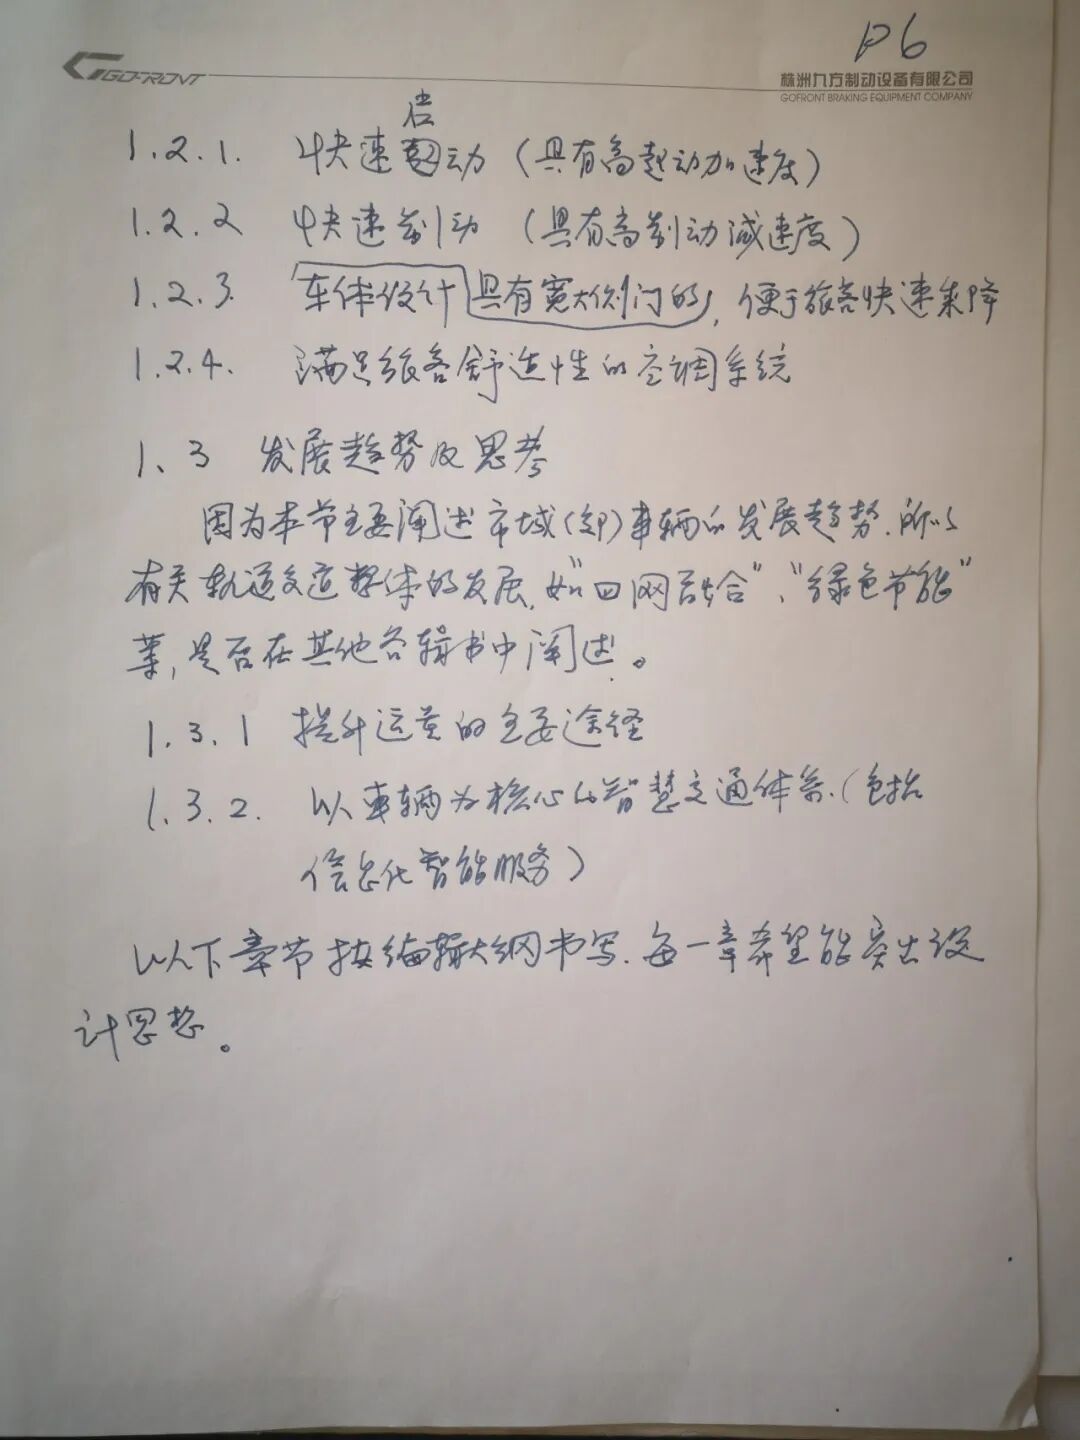 P6
GOFRONT
株洲九方制动设备有限公司
GOFRONT BRAKING EQUIPMENT COMPANY
1.2.1. 快速启动（具有高起动加速度）
1.2.2 快速制动（具有高制动减速度）
1.2.3. 车体设计具有宽大侧门的，便于旅客快速乘降
1.2.4. 满足旅客舒适性的空调系统
1.3 发展趋势及思考
因为本节主要阐述市域(郊)车辆的发展趋势.所以
有关轨道交通整体的发展,如"四网融合"、"绿色节能"
等,是否在其他各辑书中阐述。
1.3.1 提升运量的主要途径
1.3.2. 以车辆为核心的智慧交通体系.(包括
信息化智能服务)
以下章节按编辑大纲书写.每一章希望能突出设
计思想。